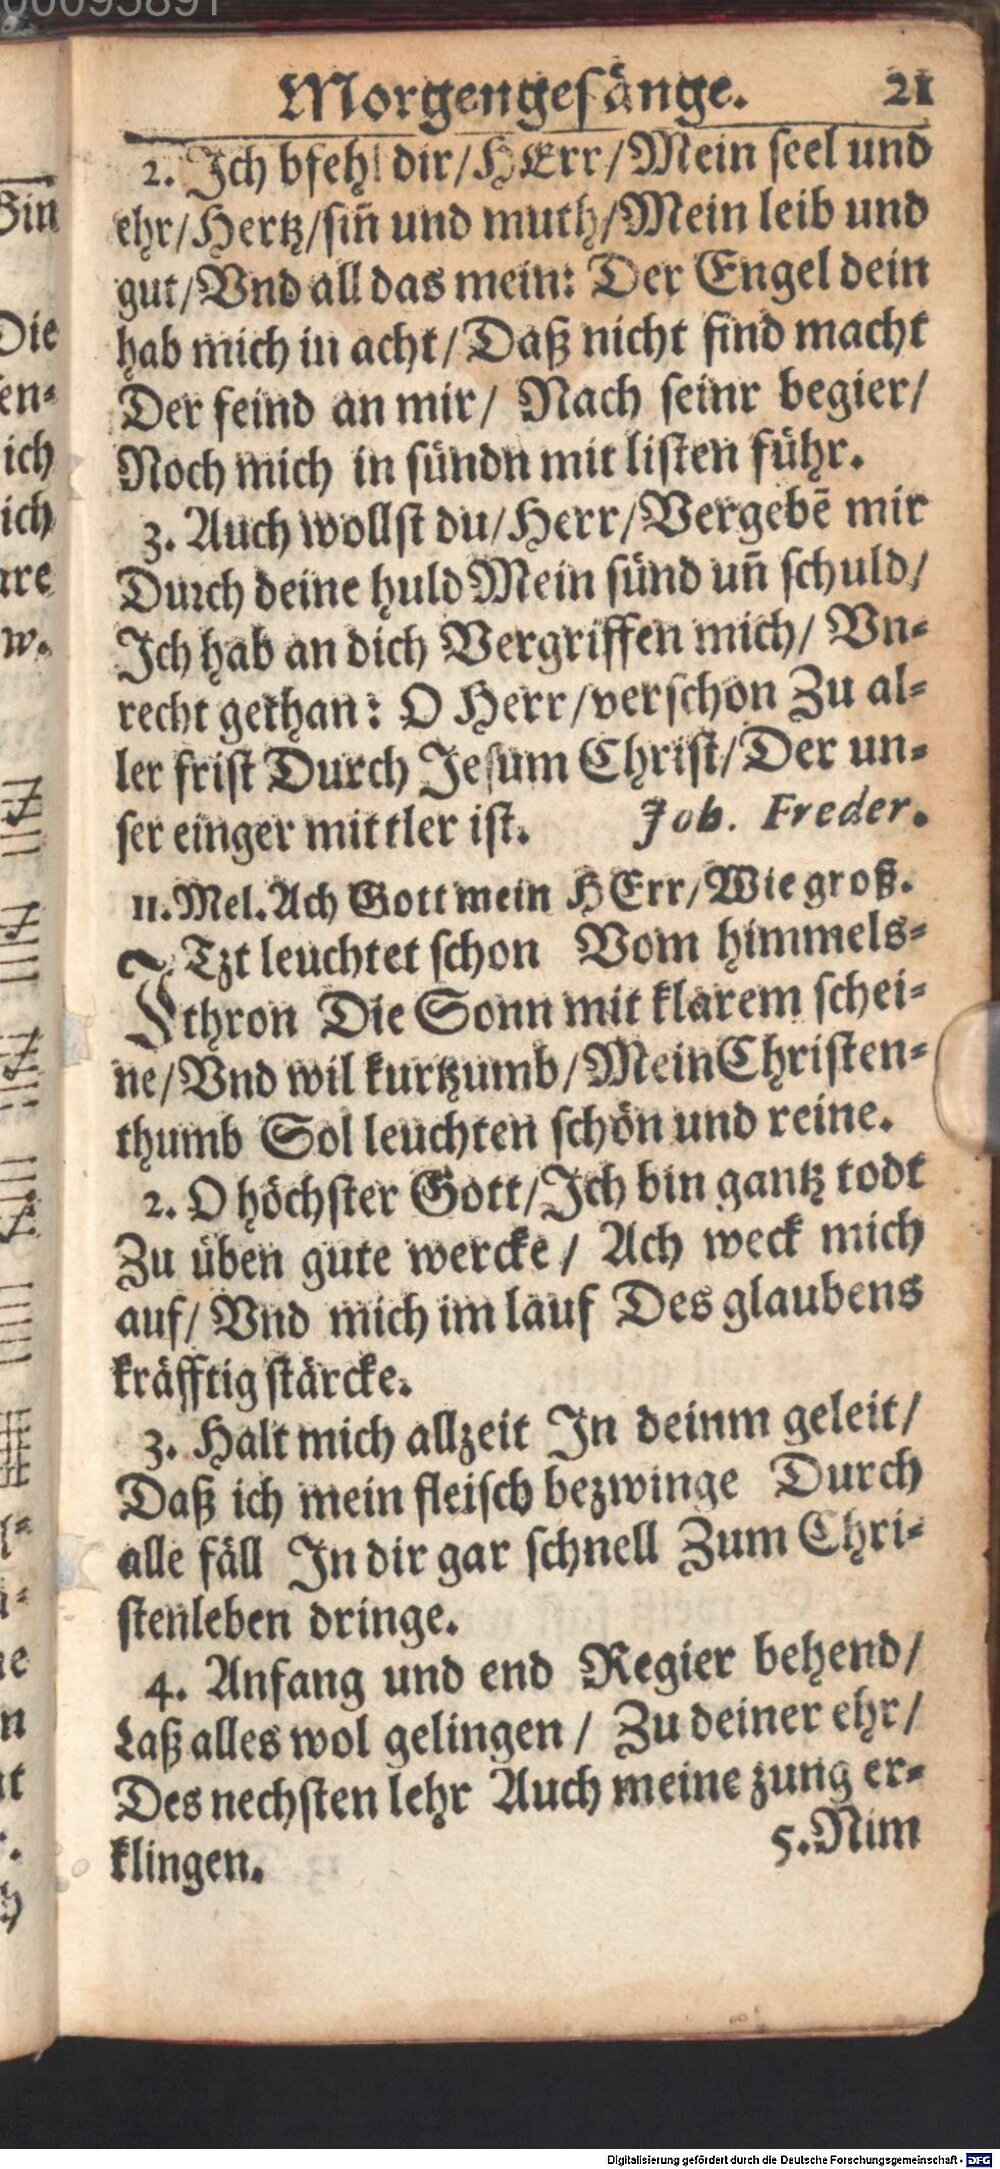 00095891
Morgengesänge. 21
2. Ich bfehl dir/HErr/Mein seel und
ehr/Hertz/sin̄ und muth/Mein leib und
gut/Vnd all das mein: Der Engel dein
hab mich in acht/Daß nicht find macht
Der feind an mir/ Nach seinr begier/
Noch mich in sündn mit listen führ.
3. Auch wollst du/Herr/Vergebē mir
Durch deine huld Mein sünd un̄ schuld/
Ich hab an dich Vergriffen mich/ Vn-
recht gethan: O Herr/verschon Zu al-
ler frist Durch Jesum Christ/Der un-
ser einger mittler ist. Joh. Freder.
11. Mel. Ach Gott mein HErr/Wie groß.
ITzt leuchtet schon Vom himmels-
thron Die Sonn mit klarem schei-
ne/Vnd wil kurtzumb/Mein Christen-
thumb Sol leuchten schön und reine.
2. O höchster Gott/Ich bin gantz todt
Zu üben gute wercke/ Ach weck mich
auf/ Vnd mich im lauf Des glaubens
kräfftig stärcke.
3. Halt mich allzeit In deinm geleit/
Daß ich mein fleisch bezwinge Durch
alle fäll In dir gar schnell Zum Chri-
stenleben dringe.
4. Anfang und end Regier behend/
Laß alles wol gelingen/ Zu deiner ehr/
Des nechsten lehr Auch meine zung er-
klingen. 5. Nim
Digitalisierung gefördert durch die Deutsche Forschungsgemeinschaft - DFG